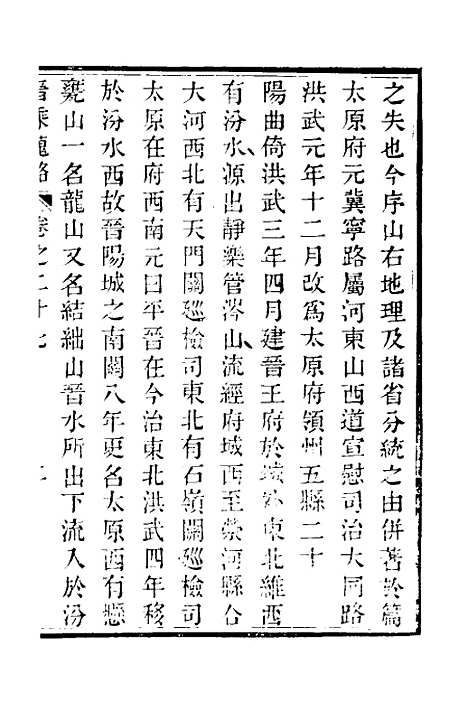 之失也今序山右地理及諸省分統之由併著於篇
太原府元冀寧路屬河東山西道宣慰司治大同路
洪武元年十二月改爲太原府領州五縣二十
陽曲倚洪武三年四月建晉王府於城外東北維西
有汾水源出靜樂管涔山流經府城西至滎河縣合
大河西北有天門關廵檢司東北有石嶺關廵檢司
太原在府西南元曰平晉在今治東北洪武四年移
於汾水西故晉陽城之南關八年更名太原西有懸
甕山一名龍山又名結絀山晉水所出下流入於汾
晉乘蒐略 卷之二十七 二